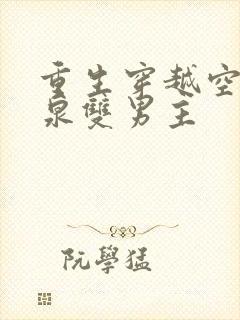 重生穿越空
泉雙男主
阮學猛